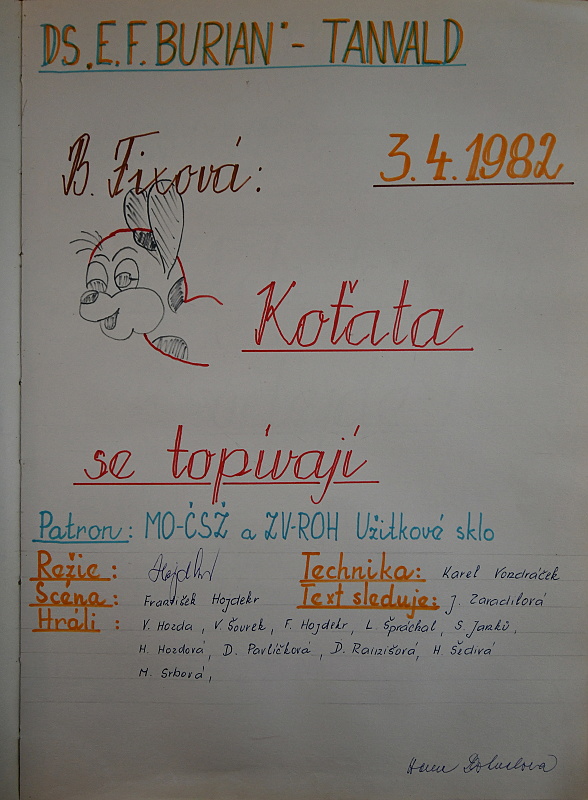 DS „E. F. BURIAN" - TANVALD
B. Fixová:
3. 4. 1982
Koťata
se topívají
Patron: MO-ČSŽ a ZV-ROH Užitkové sklo
Režie:
Technika: Karel Vozdráček
Scéna: František Hojdekr
Text sleduje: J. Zaradilová
Hráli: V. Hozda, V. Šourek, F. Hojdekr, L. Špráchal, S. Janků,
H. Hozdová, D. Pavlíčková, D. Ranzišová, H Šedivá
M. Srbová,